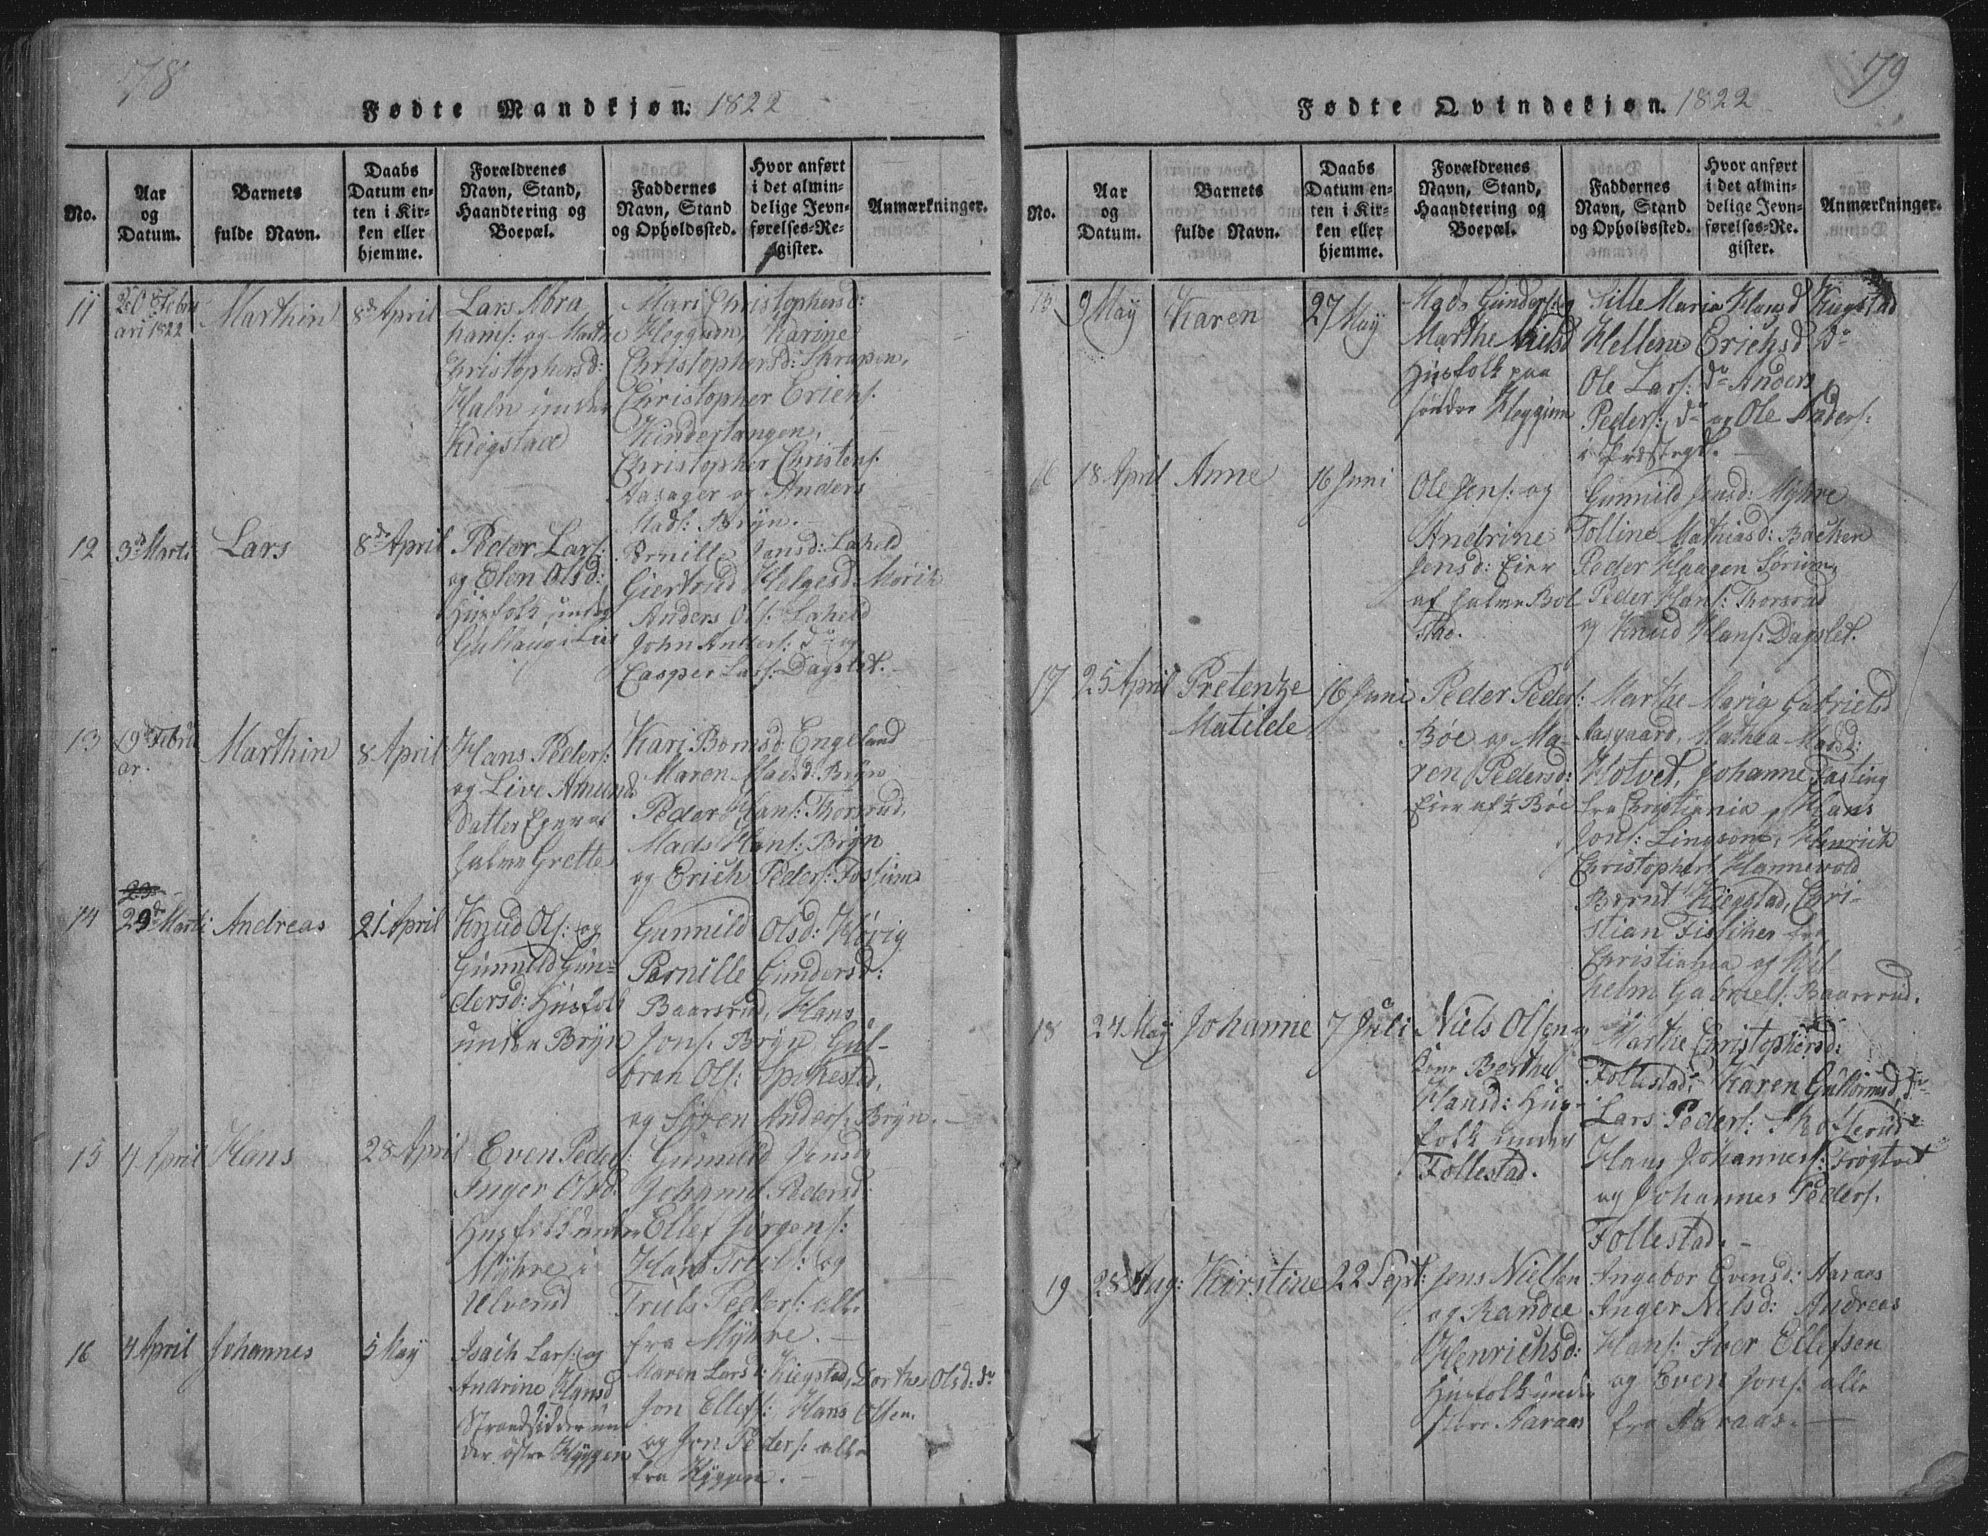 78
Fødte Mandkjøn. 1822
No.
Aar og Datum.
Barnets fulde Navn.
Daabs Datum enten i Kirken eller hjemme.
Forældrenes Navn, Stand, Haandtering og Boepæl.
Faddernes Navn, Stand og Opholdssted.
Hvor anført i det almindelige Jevnførelses-Register.
Anmærkninger.
11
20 Febru
ari 1822
Marthin
8de April
Lars Abra
hams: og Marthe
Christophersd:
Haln under
Kiøgstad
Mari Christophersd:
Heggum, Karine
Christophersd: Skrapen,
Christopher Eriens.
Kinderlangen,
Christopher Christens.
Aasager og Anders
Mads: Brÿn.
12
3de Marti
Lars
8de April
Peder Lars:
og Elen Olsd:
Husfolk under
Gullaug i Lier
Pernille Jonsd: Laheld
Giertrud Helgesd Mørik
Anders Ols: Laheld
John Anders: do og
Casper Lars: Dagslet.
13
19de Febru
ar.
Marthin
8 April
Hans Peders:
og Live Amund
Datter Eier af
halve Grette
Kari Bonesd: Engeland
Maren Madsd: Brÿn
Peder Hans: Thorsrud,
Mads Hans: Brÿn
og Erich Peders: Fossum
14
29de Marti
Andreas
21 April
Knud Ols: og
Gunnild Gun-
dersd: Husfolk
under Brÿn
Gunnild Olsd: Høvig
Pernille Gundersd:
Baarsrud, Hans
Jons. Brÿn Gul-
bran Ols: Spikestad,
og Søren Anders: Brÿn.
15
4 April
Hans
28 April
Even Peders:
Inger Olsd.
Husfolk under
Mÿhre i
Ulverud
Gunnild Jonsd:
Johanne Pedersd:
Ellef Jørgens:
Hans Truls: og
Truls Peders: alle
fra Mÿhre.
16
4 April
Johannes
5 May
Isach Lars: og
Andrine Hansd
Strandsidder un
der østre Hÿggen
Maren Larsd: Kiegstad, Dorthe Olsd: do
Jon Ellefs: Hans Olsen
og Jon Peders: alle
fra Hÿggen.
79
Fødte Qvindekjøn. 1822
No.
Aar og Datum.
Barnets fulde Navn.
Daabs Datum enten i Kirken eller hjemme.
Forældrenes Navn, Stand, Haandtering og Boepæl.
Faddernes Navn, Stand og Opholdssted.
Hvor anført i det almindelige Jevnførelses-Register.
Anmærkninger.
15
9 May
Karen
27 May
Gunders: og
Marthe Nielsd
Husfolk paa
søndre Heggum
Sille Maria Hansd Kiegstad
Hellene Erichsd Do
Ole Lars: do Anders
Peders: do og Ole Anders:
16
18 April
Anne
16 Juni
Ole Jens: og
Andrine
Jensd: Eier
af halve Bøl
stad.
Gunnild Jensd: Mÿhre
Tolline Mathiasd: Bæcken
Peder Haagen Sørum,
Peder Hans: Thorsrud
og Knud Hans: Dagslet.
17
25 April
Pretenze
Matilde
16 Juni
Peder Peders:
Bøe og Ma-
ren Pedersd:
Eier af ½ Bøe
Marthe Maria Gabrielsd
Aasgaard, Mathea Madsd:
Hotvet, Johanne Fasting
fra Christiania, Hans
Jons: Lingsom, Henrich
Christophers: Hannevold
Bernt Kiegstad, Chri-
stian Fischer fra
Christiania og Vil
helm Gabriels: Baarsrud.
18
24 May
Johanne
7 Juli
Niels Olsen
Berthe
Hansd: Hus-
folk under
Follestad.
Marthe Christophersd:
Follestad, Karen Guttormsd do
Lars Peders: Skotterud
Hans Johannes: Trøgtvet
og Johannes Peders.
Follestad.
19
28 Aug:
Kirstine
22 Sept:
Jens Nielsen
og Randie
Henrichsd:
Husfolk under
Aaraas
Ingebor Evensd: Aaraas
Anger Nilsd: Andreas
Hans: Iver Ellefsen
og Even Jons: alle
fra Aaraas.